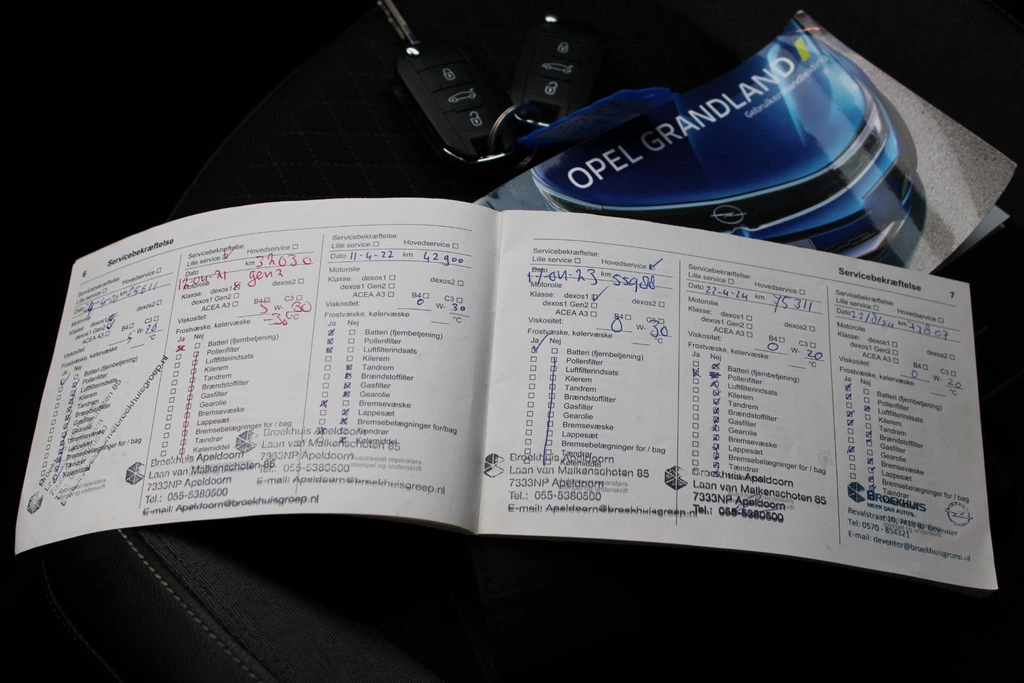 OPEL GRANDLAND
Gebruikershandleiding
6 Servicebekræftelse
Servicebekræftelse:
Lille service Hovedservice
Motorolie
Klasse: dexos1
dexos1 Gen2 dexos2
ACEA A3 B4 C3
Viskositet: 5 W- 20
Frostvæske, kølervæske
Ja Nej
Batteri (fjernbetjening)
Pollenfilter
Luftfilterindsats
Kilerem
Tandrem
Brændstoffilter
Gasfilter
Gearolie
Bremsevæske
Lappesæt
Bremsebelægninger for / bag
Tændrør
Servicebekræftelse:
Lille service Hovedservice
Dato km 32030
Motorolie gen2
Klasse: dexos1
dexos1 Gen2 dexos2
ACEA A3 B4 C3
Viskositet: 5 W- 30
Frostvæske, kølervæske -36 °C
Ja Nej
Batteri (fjernbetjening)
Pollenfilter
Luftfilterindsats
Kilerem
Tandrem
Brændstoffilter
Gasfilter
Gearolie
Bremsevæske
Lappesæt
Bremsebelægninger for / bag
Tændrør
Kølemiddel
Broekhuis Apeldoorn
Laan van Malkenschoten 85
7333NP Apeldoorn
Tel.: 055-5380500
E-mail: Apeldoorn@broekhuisgroep.nl
Servicebekræftelse:
Lille service Hovedservice
Dato 11-4-22 km 42900
Motorolie
Klasse: dexos1
dexos1 Gen2 dexos2
ACEA A3 B4 C3
Viskositet: 0 W- 30
Frostvæske, kølervæske °C
Ja Nej
Batteri (fjernbetjening)
Pollenfilter
Luftfilterindsats
Kilerem
Tandrem
Brændstoffilter
Gasfilter
Gearolie
Bremsevæske
Lappesæt
Bremsebelægninger for/bag
Tændrør
Kølemiddel
Broekhuis Apeldoorn
Laan van Malkenschoten 85
7333NP Apeldoorn
Tel.: 055-5380500
E-mail: Apeldoorn@broekhuisgroep.nl
Servicebekræftelse 7
Servicebekræftelse:
Lille service Hovedservice
Dato 17-04-23 km
Motorolie
Klasse: dexos1
dexos1 Gen2 dexos2
ACEA A3 B4 C3
Viskositet: 0 W- 30
Frostvæske, kølervæske °C
Ja Nej
Batteri (fjernbetjening)
Pollenfilter
Luftfilterindsats
Kilerem
Tandrem
Brændstoffilter
Gasfilter
Gearolie
Bremsevæske
Lappesæt
Bremsebelægninger for / bag
Tændrør
Kølemiddel
Broekhuis Apeldoorn
Laan van Malkenschoten 85
7333NP Apeldoorn
Tel.: 055-5380500
E-mail: Apeldoorn@broekhuisgroep.nl
Servicebekræftelse:
Lille service Hovedservice
Dato 22-4-24 km 75311
Motorolie
Klasse: dexos1
dexos1 Gen2 dexos2
ACEA A3 B4 C3
Viskositet: 0 W- 20
Frostvæske, kølervæske °C
Ja Nej
Batteri (fjernbetjening)
Pollenfilter
Luftfilterindsats
Kilerem
Tandrem
Brændstoffilter
Gasfilter
Gearolie
Bremsevæske
Lappesæt
Bremsebelægninger for / bag
Tændrør
Broekhuis Apeldoorn
Laan van Malkenschoten 85
7333NP Apeldoorn
Tel.: 055-5380500
Servicebekræftelse:
Lille service Hovedservice
Dato km
Motorolie
Klasse: dexos1
dexos1 Gen2 dexos2
ACEA A3 B4 C3
Viskositet: 0 W- 20
Frostvæske, kølervæske °C
Ja Nej
Batteri (fjernbetjening)
Pollenfilter
Luftfilterindsats
Kilerem
Tandrem
Brændstoffilter
Gasfilter
Gearolie
Bremsevæske
Lappesæt
Bremsebelægninger for / bag
Tændrør
BROEKHUIS
MEER DAN AUTO'S
Revalstraat 10, Deventer
Tel: 0570 - 854321
E-mail: deventer@broekhuisgroep.nl